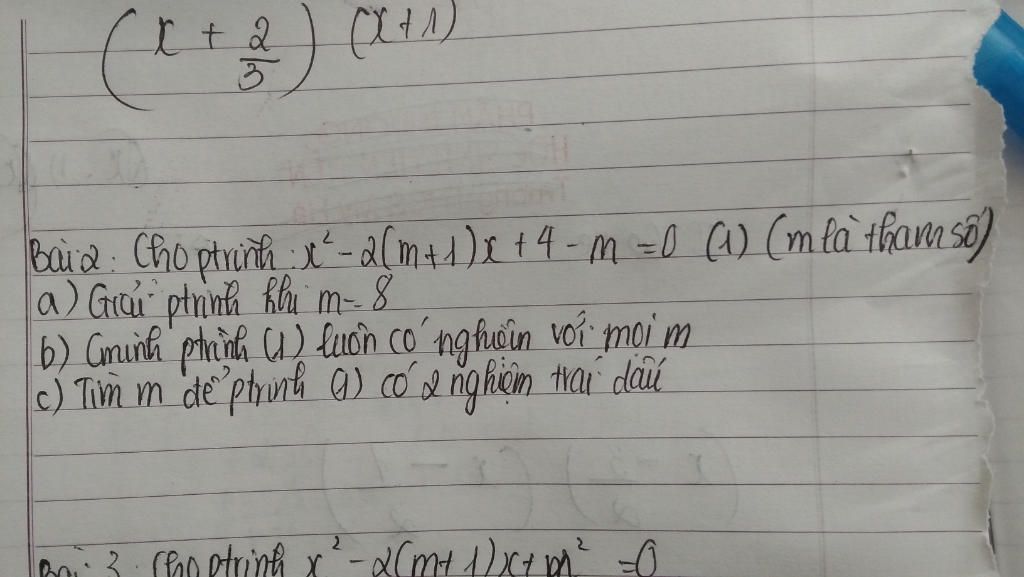 (x + 2/3) (x+1)
Bài 2: Cho ptrình: x² - 2(m+1)x + 4 - m = 0 (1) (m là tham số)
a) Giải ptrình khi m = 8
b) Cminh ptrình (1) luôn có nghiệm với mọi m
c) Tìm m để ptrình (1) có 2 nghiệm trái dấu
Bài 3. Cho ptrình x² - 2(m+1)x + m² = 0